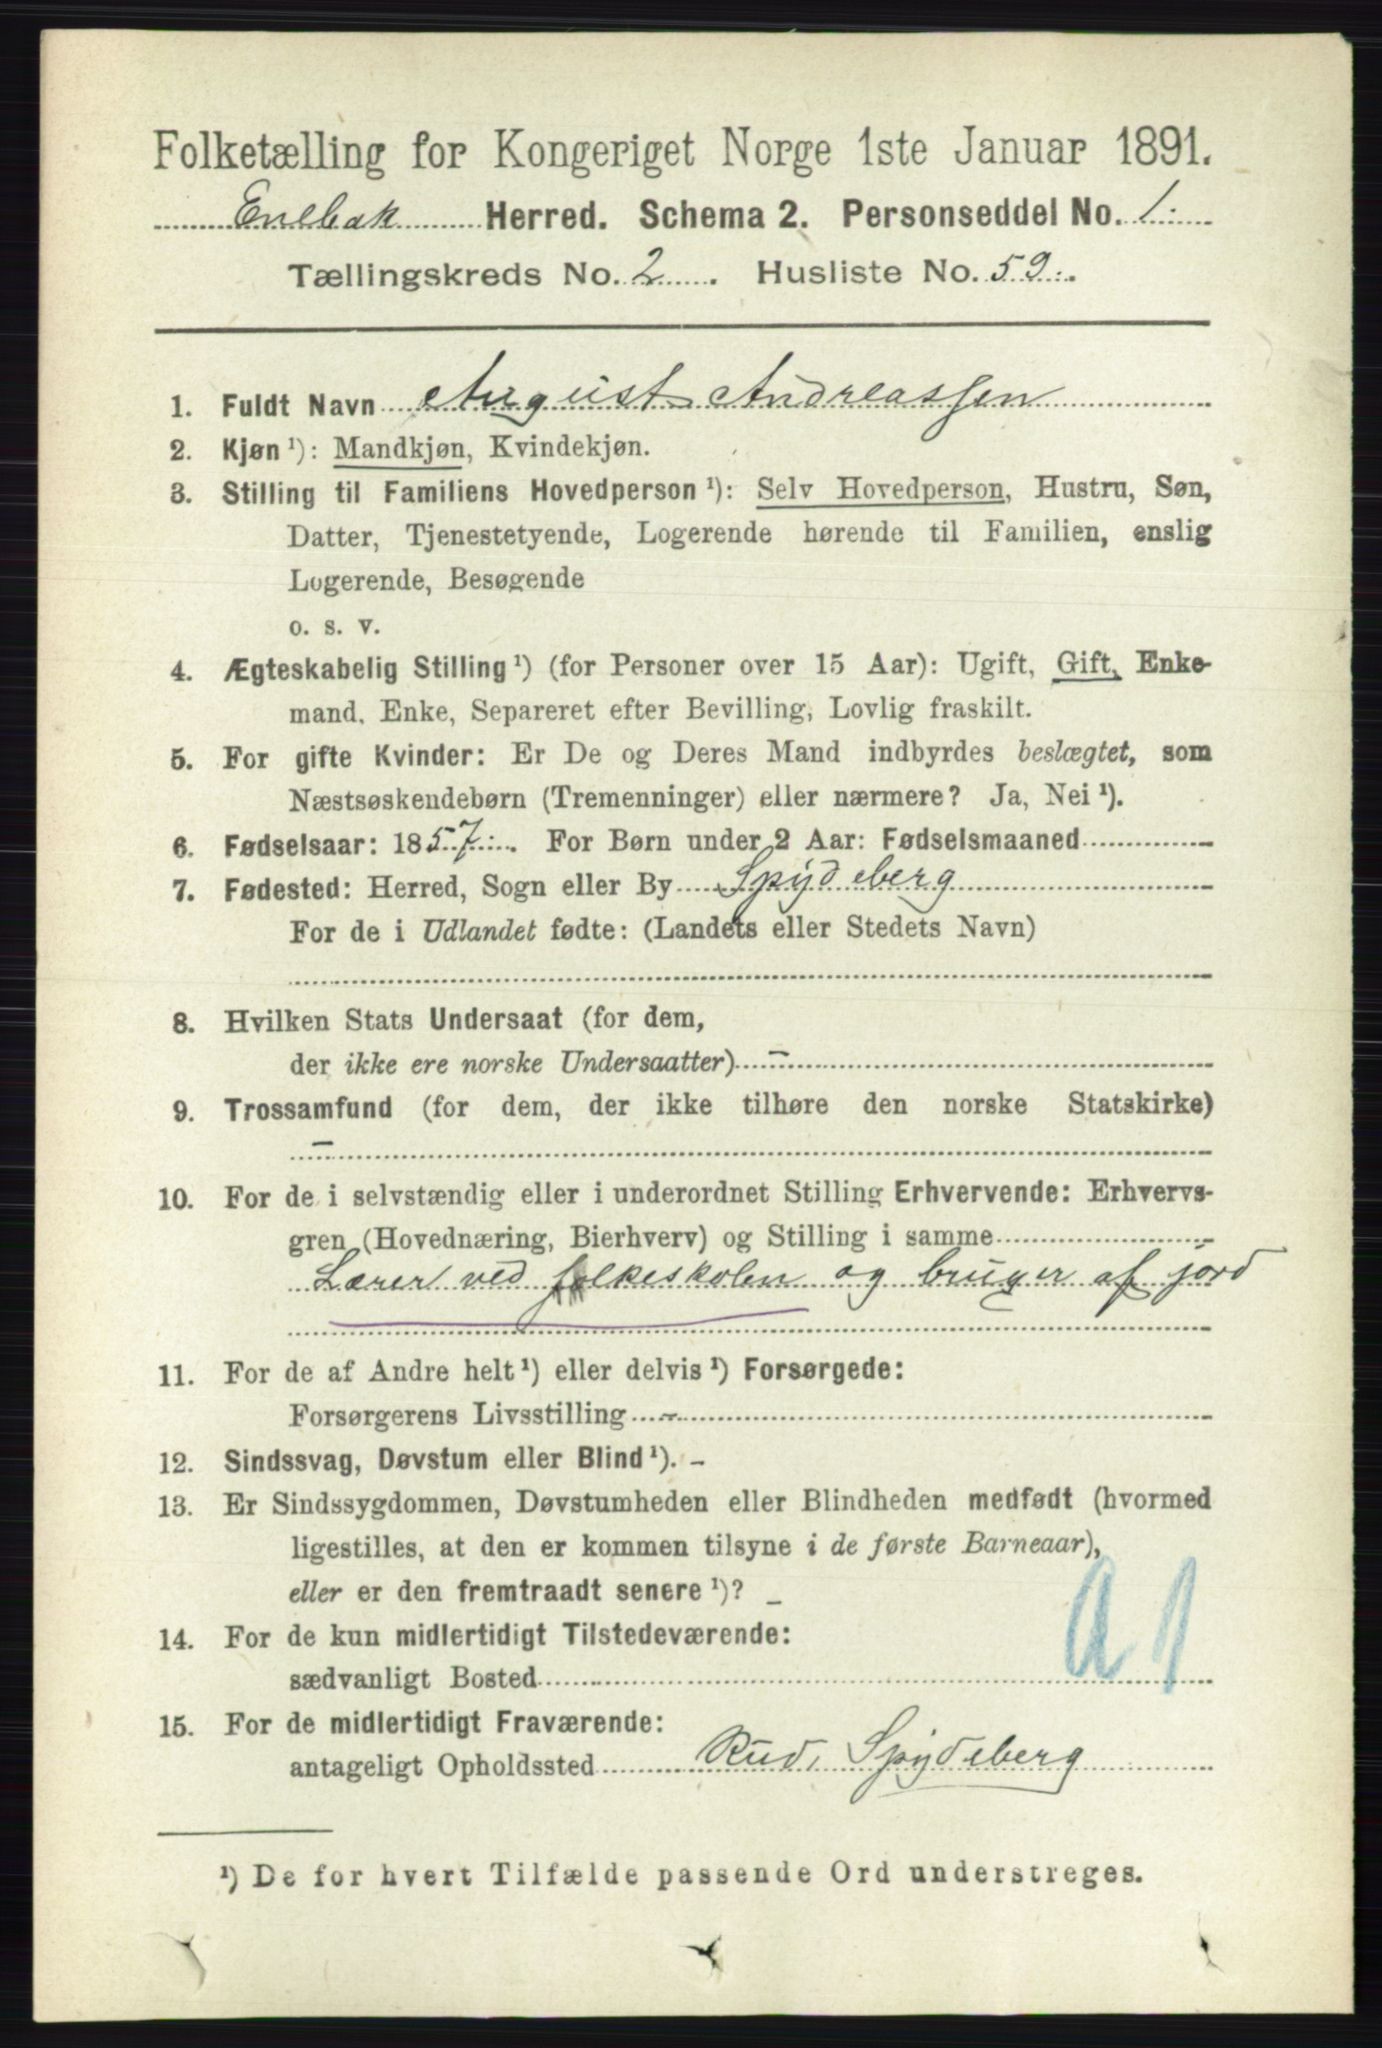 Folketælling for Kongeriget Norge 1ste Januar 1891.
Enebak Herred. Schema 2. Personseddel No. 1.
Tællingskreds No. 2. Husliste No. 59.
1. Fuldt Navn August Andreassen
2. Kjøn ¹): Mandkjøn, Kvindekjøn.
3. Stilling til Familiens Hovedperson ¹): Selv Hovedperson, Hustru, Søn,
Datter, Tjenestetyende, Logerende hørende til Familien, enslig
Logerende, Besøgende
o. s. v.
4. Ægteskabelig Stilling ¹) (for Personer over 15 Aar): Ugift, Gift, Enke-
mand, Enke, Separeret efter Bevilling, Lovlig fraskilt.
5. For gifte Kvinder: Er De og Deres Mand indbyrdes beslægtet, som
Næstsøskendebørn (Tremenninger) eller nærmere? Ja, Nei ¹).
6. Fødselsaar: 1857. For Børn under 2 Aar: Fødselsmaaned
7. Fødested: Herred, Sogn eller By Spydeberg
For de i Udlandet fødte: (Landets eller Stedets Navn)
8. Hvilken Stats Undersaat (for dem,
der ikke ere norske Undersaatter) –
9. Trossamfund (for dem, der ikke tilhøre den norske Statskirke)
–
10. For de i selvstændig eller i underordnet Stilling Erhvervende: Erhvervs-
gren (Hovednæring, Bierhverv) og Stilling i samme
Lærer ved folkeskolen og bruger af jord
11. For de af Andre helt ¹) eller delvis ¹) Forsørgede:
Forsørgerens Livsstilling –
12. Sindssvag, Døvstum eller Blind ¹). –
13. Er Sindssygdommen, Døvstumheden eller Blindheden medfødt (hvormed
ligestilles, at den er kommen tilsyne i de første Barneaar),
eller er den fremtraadt senere ¹)? –
14. For de kun midlertidigt Tilstedeværende:
sædvanligt Bosted
A 1
15. For de midlertidigt Fraværende:
antageligt Opholdssted Rud, Spydeberg
¹) De for hvert Tilfælde passende Ord understreges.